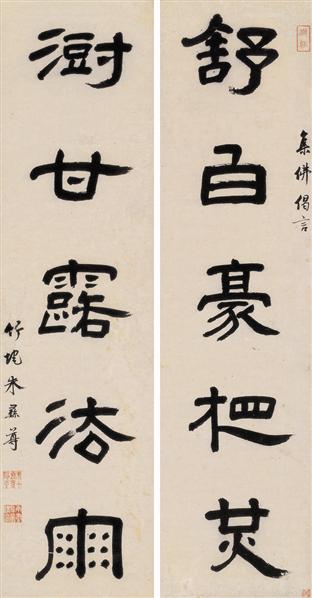 集佛偈言
舒白豪相炗
澍甘露法雨
竹垞朱彝尊